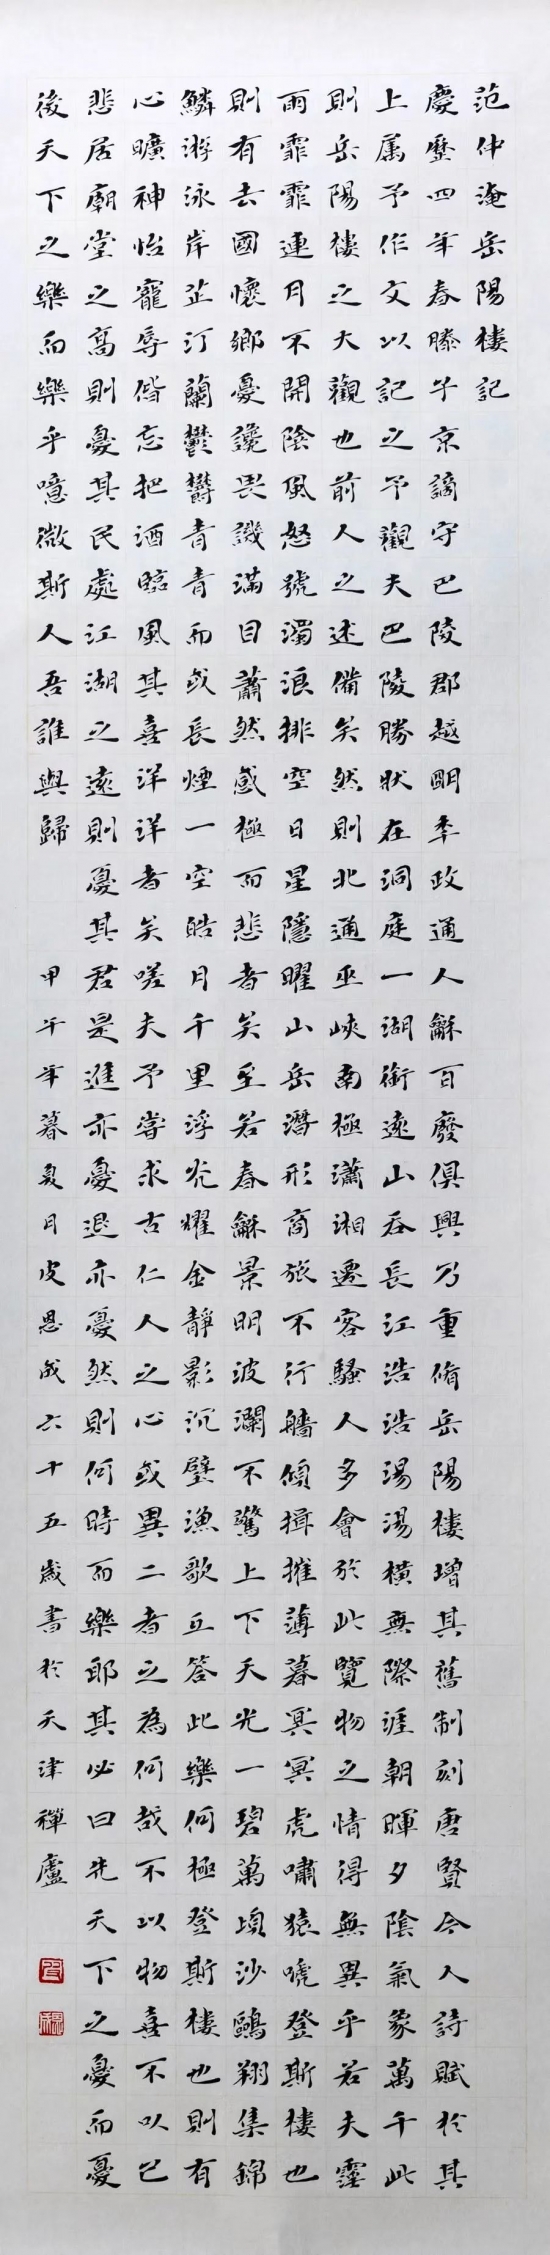 范仲淹岳陽樓記
慶歷四年春滕子京謫守巴陵郡越明年政通人龢百廢俱興乃重脩岳陽樓增其舊制刻唐賢今人詩賦於其
上屬予作文以記之予觀夫巴陵勝狀在洞庭一湖銜遠山吞長江浩浩湯湯橫無際涯朝暉夕陰氣象萬千此
則岳陽樓之大觀也前人之述備矣然則北通巫峽南極瀟湘遷客騷人多會於此覽物之情得無異乎若夫霪
雨霏霏連月不開陰風怒號濁浪排空日星隱曜山岳潛形商旅不行艢傾揖摧薄暮冥冥虎嘯猿唬登斯樓也
則有去國懷鄉憂讒畏譏滿目蕭然感極而悲者矣至若春龢景明波瀾不驚上下天光一碧萬頃沙鷗翔集錦
鱗游泳岸芷汀蘭鬱鬱青青而或長煙一空皓月千里浮光耀金靜影沉璧漁歌互答此樂何極登斯樓也則有
心曠神怡寵辱偕忘把酒臨風其喜洋洋者矣嗟夫予嘗求古仁人之心或異二者之為何哉不以物喜不以己
悲居廟堂之高則憂其民處江湖之遠則憂其君是進亦憂退亦憂然則何時而樂耶其必曰先天下之憂而憂
後天下之樂而樂乎噫微斯人吾誰與歸
甲午年暮夏月皮恩成六十五歲書於天津禪廬